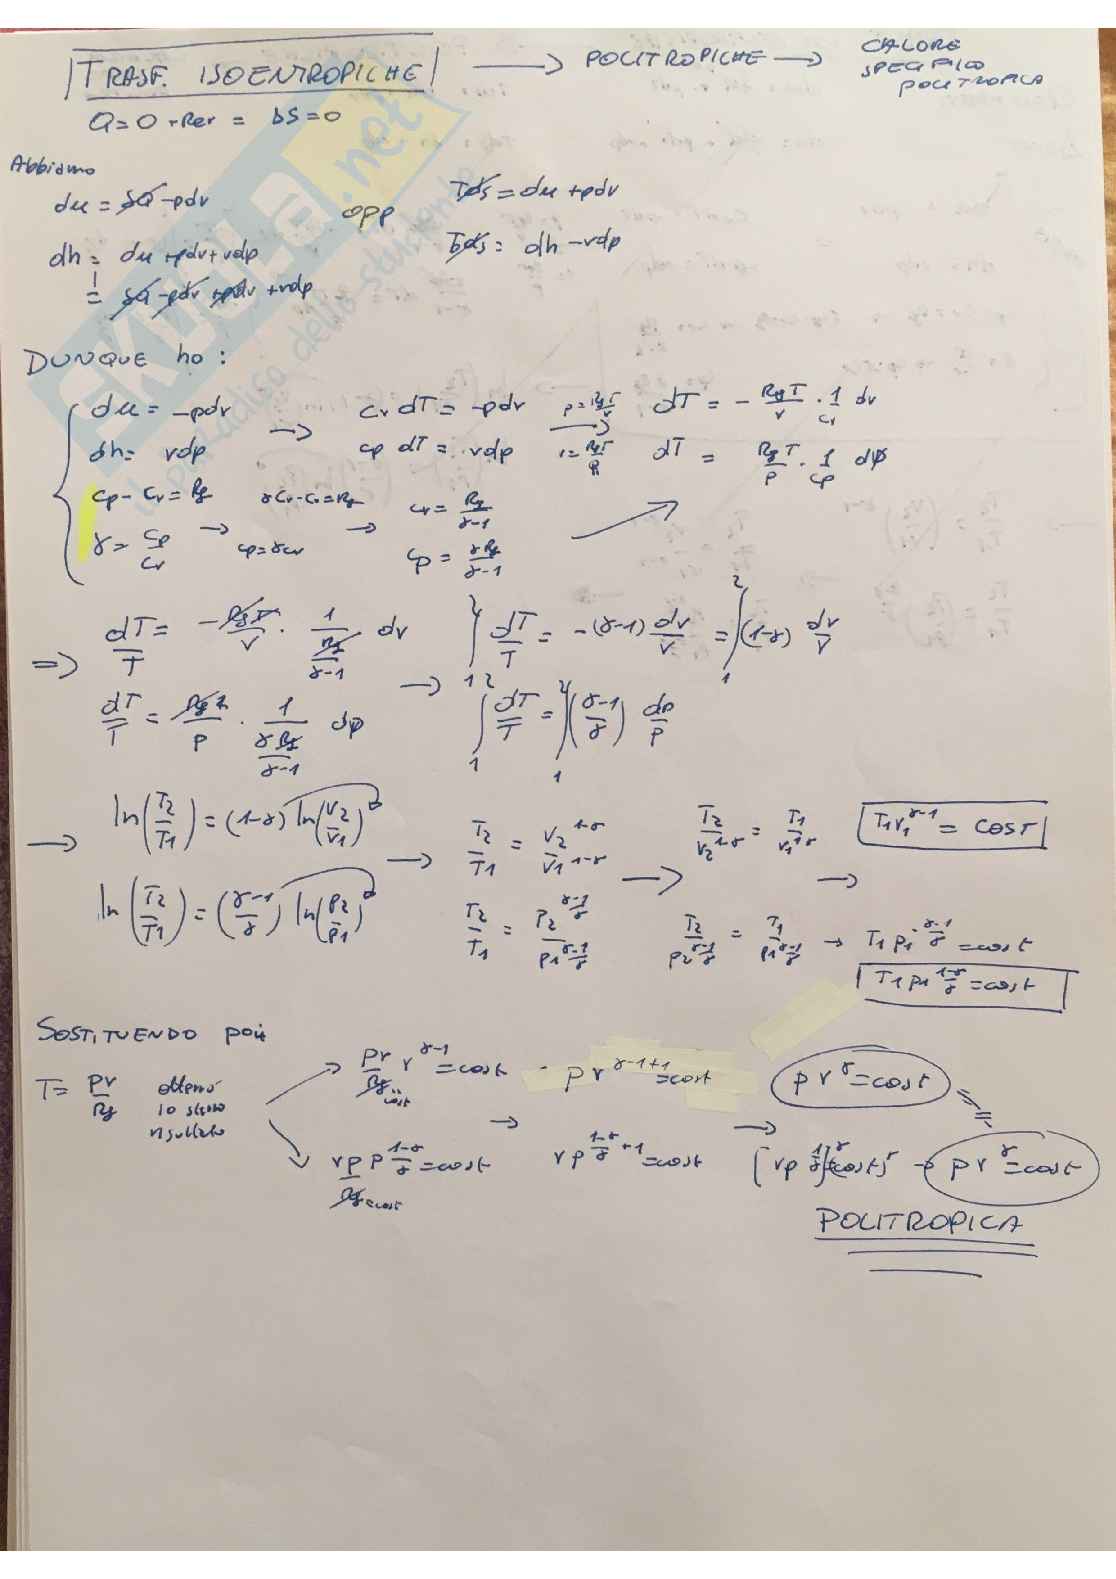 TRASF. ISOENTROPICHE → POLITROPICHE → CALORE SPECIFICO POLITROPICA
Q=0 + Rev = ΔS=0
Abbiamo
du = δQ - pdv opp Tds = du + pdv
dh = du + pdv + vdp Tds = dh - vdp
= δQ - pdv + pdv + vdp
DUNQUE ho:
du = -pdv → cv dT = -pdv p = RgT/v → dT = - RgT/v · 1/cv dv
dh = vdp cp dT = vdp v = RgT/p dT = RgT/p · 1/cp dp
cp - cv = Rg γcv - cv = Rg cv = Rg/(γ-1)
γ = cp/cv → cp = γcv → cp = γRg/(γ-1)
⇒ dT/T = - RgT/v · 1/(Rg/(γ-1)) dv ∫₁² dT/T = -(γ-1) dv/v = ∫₁² (1-γ) dv/v
dT/T = RgT/p · 1/(γRg/(γ-1)) dp → ∫₁² dT/T = ∫₁² ((γ-1)/γ) dp/p
→ ln(T2/T1) = (1-γ) ln(v2/v1) → T2/T1 = v2^(1-γ)/v1^(1-γ) → T2/v2^(1-γ) = T1/v1^(1-γ) → T1v1^(γ-1) = COST
ln(T2/T1) = ((γ-1)/γ) ln(p2/p1) T2/T1 = p2^((γ-1)/γ)/p1^((γ-1)/γ) T2/p2^((γ-1)/γ) = T1/p1^((γ-1)/γ) → T1 p1^(-(γ-1)/γ) = cost
T1 p1^((1-γ)/γ) = cost
SOSTITUENDO poi
T = pv/Rg ottengo lo stesso risultato
pv/Rg v^(γ-1) = cost pv^(γ-1+1) = cost pv^γ = cost
cost
vp/Rg p^((1-γ)/γ) = cost → vp^((1-γ)/γ+1) = cost → [vp^(1/γ)]^γ = (cost)^γ → pv^γ = cost
Rg = cost
POLITROPICA
SKUOLA.net
il paradiso dello studente